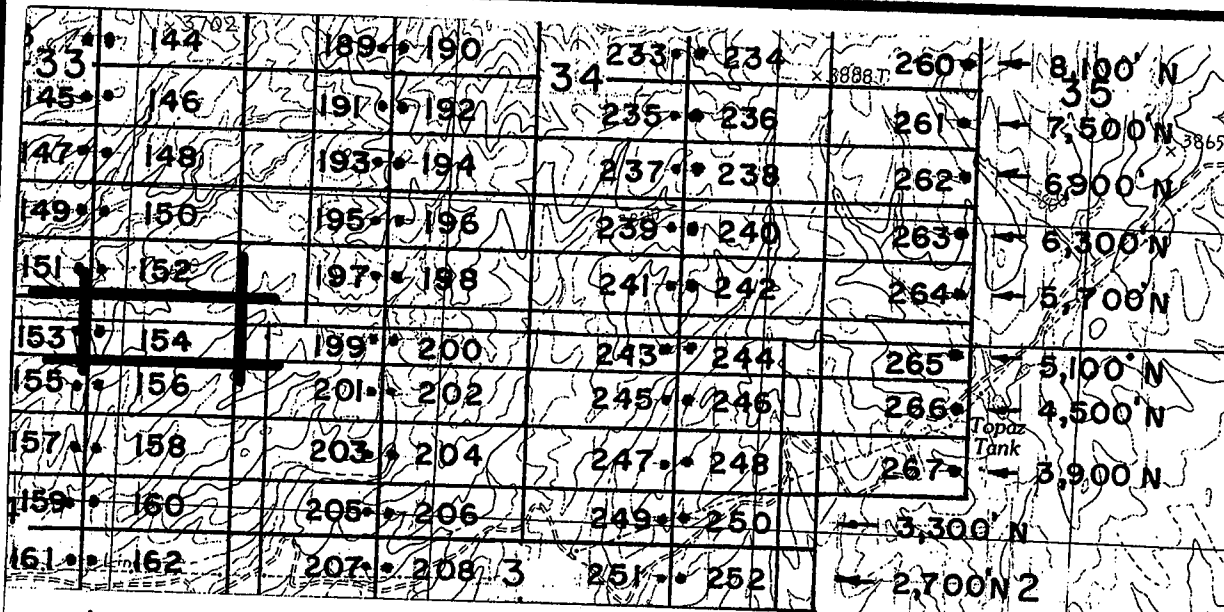 3702
144 189 190 233 234 260 8,100' N
33 34 ×3888T 35
145 146 191 192 235 236 261 7,500' N
×3865
147 148 193 194 237 238 262 6,900' N
149 150 195 196 239 240 263 6,300' N
151 152 197 198 241 242 264 5,700' N
153 154 199 200 243 244 265 5,100' N
155 156 201 202 245 246 266 4,500' N
Topaz
Tank
157 158 203 204 247 248 267 3,900' N
159 160 205 206 249 250 3,300' N
161 162 207 208 3 251 252 2,700' N 2